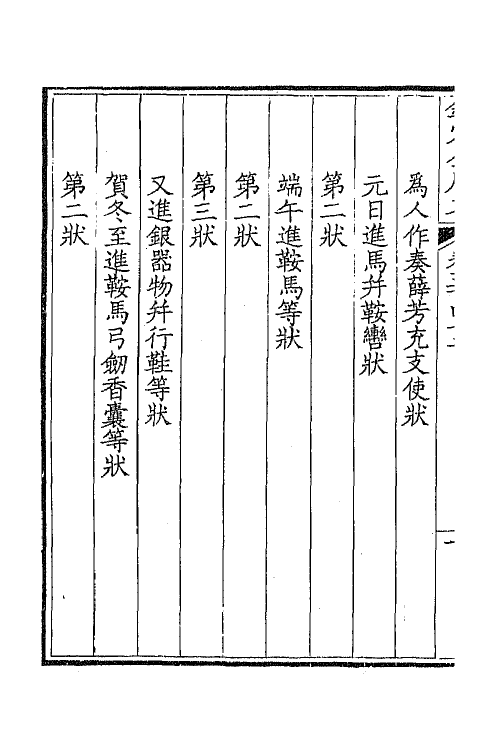 爲人作奏薛芳充支使狀
元日進馬幷鞍轡狀
第二狀
端午進鞍馬等狀
第二狀
第三狀
又進銀器物幷行鞋等狀
賀冬至進鞍馬弓劒香囊等狀
第二狀